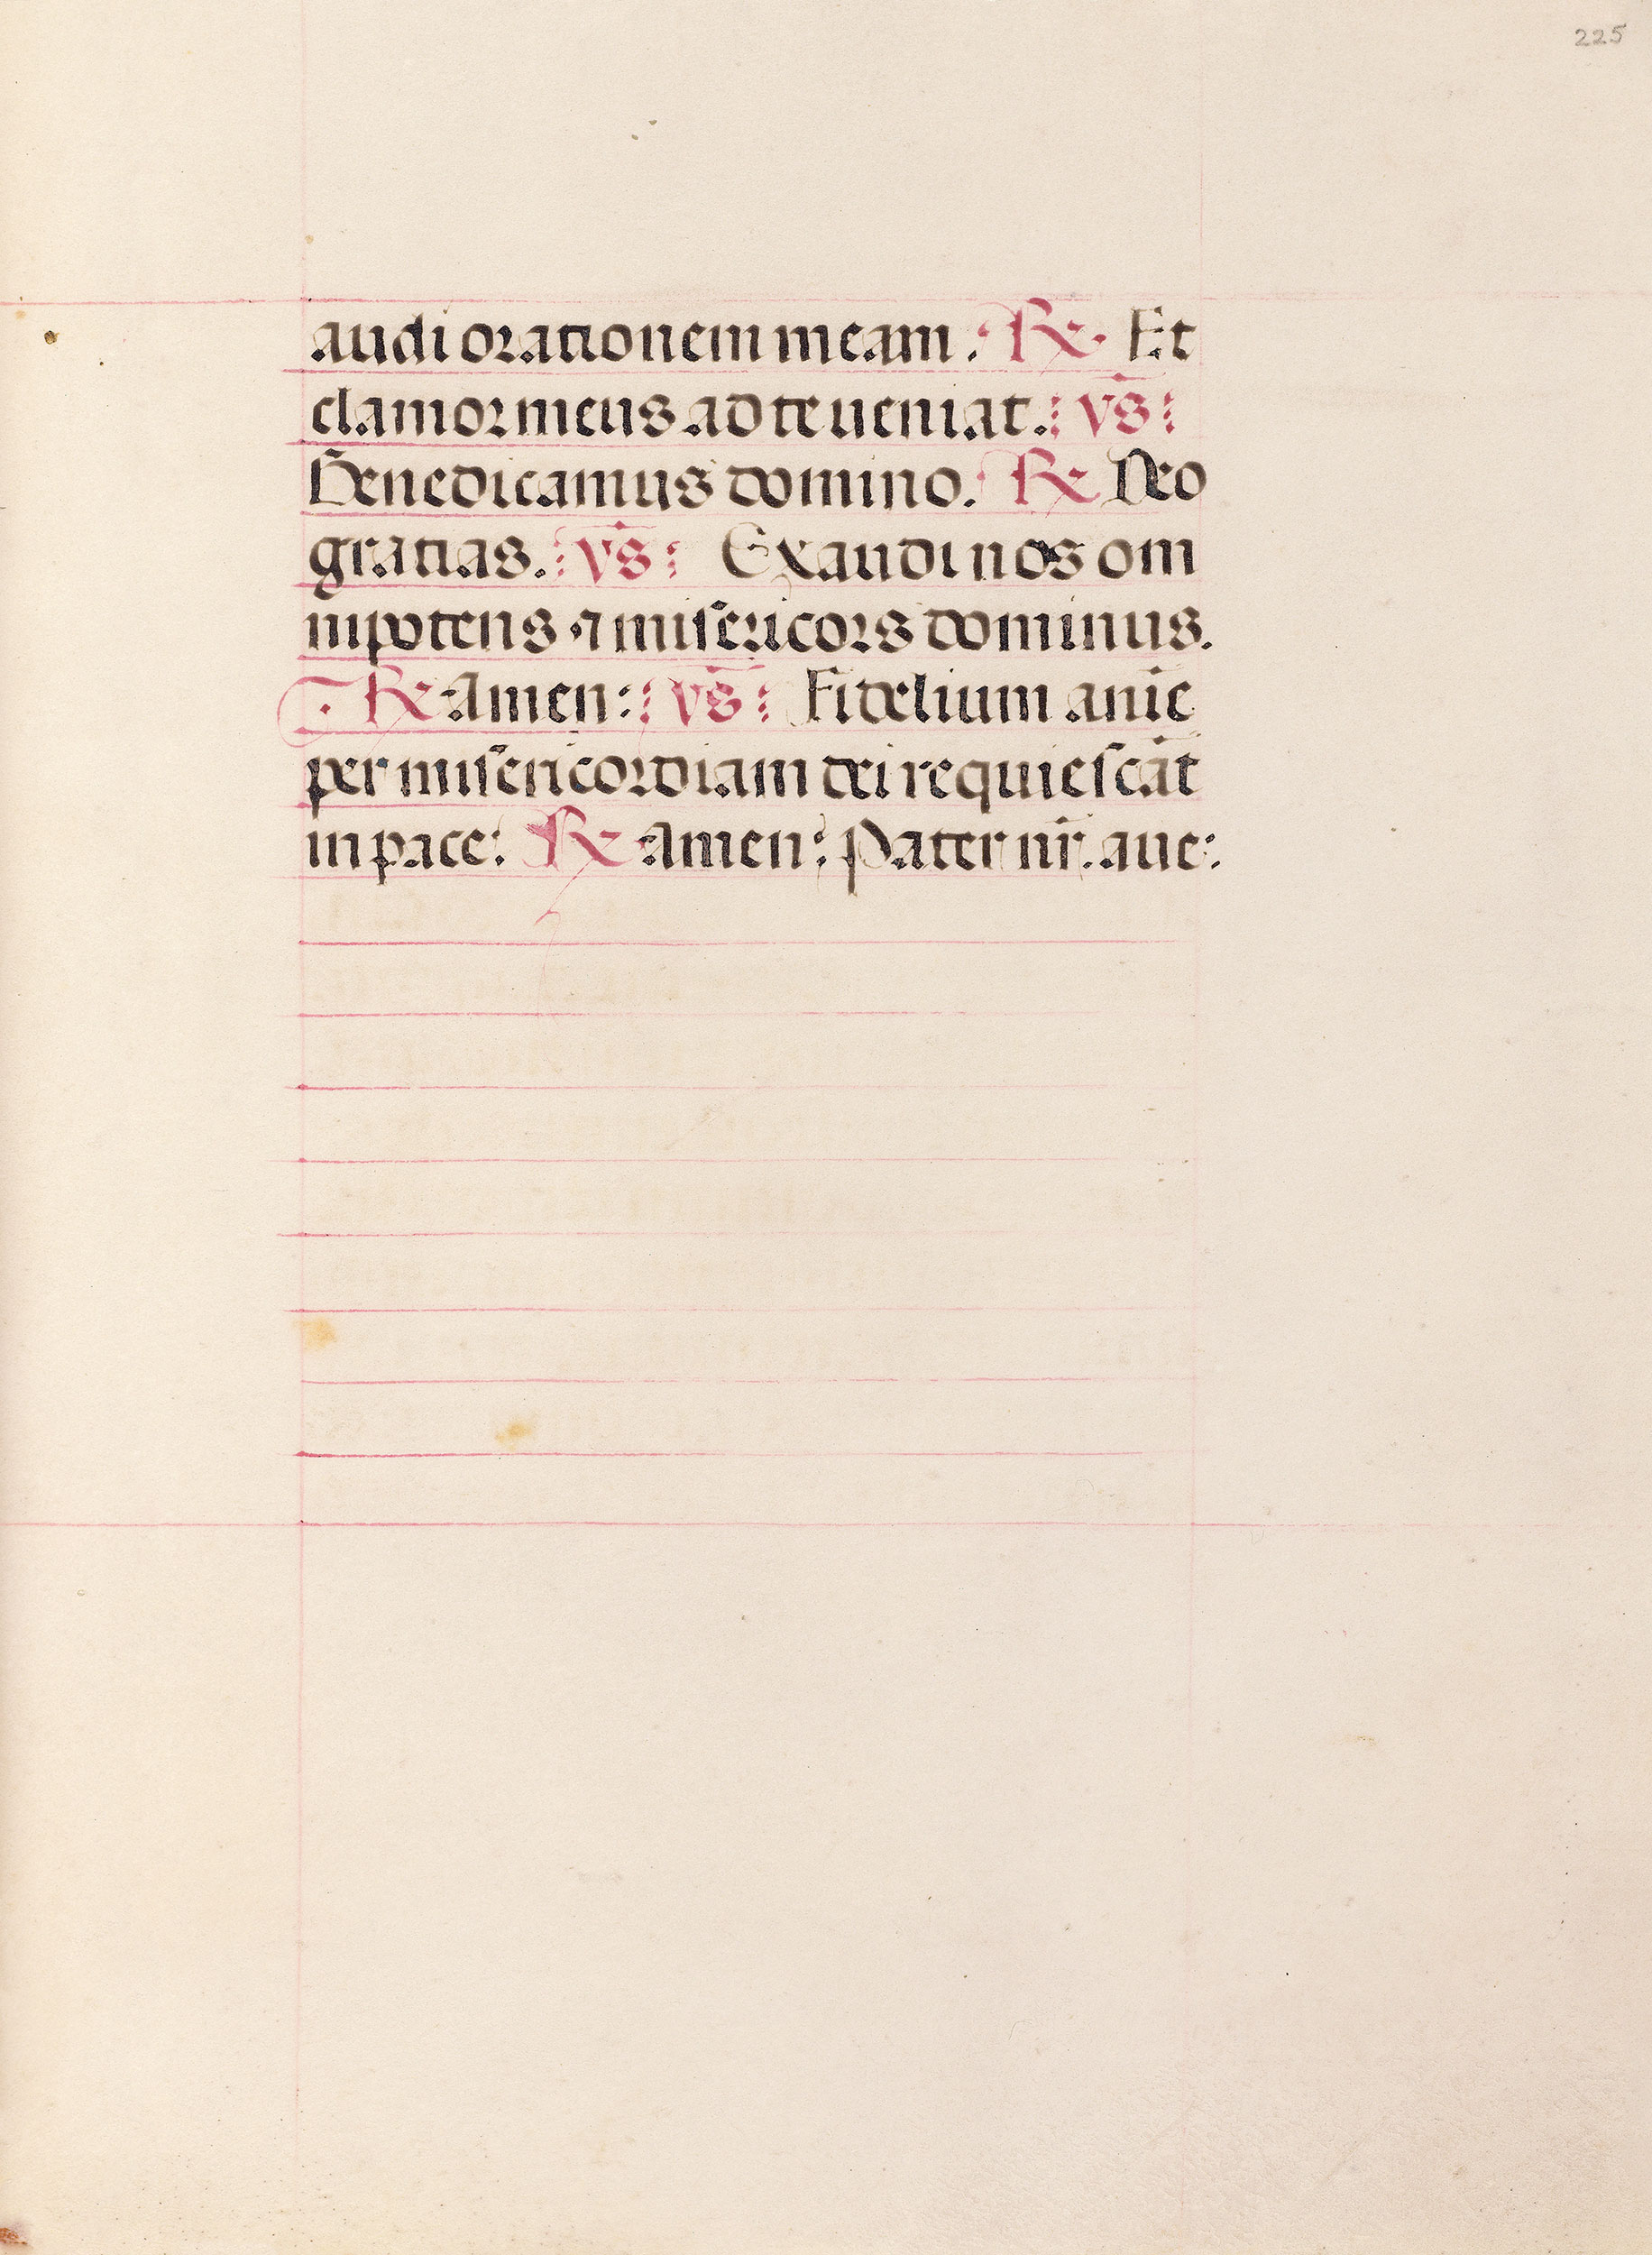 225
audi orationem meam. ℟. Et
clamor meus ad te ueniat. vs̄
Benedicamus domino. ℟ Deo
gratias. vs̄ Exaudi nos om
nipotens ⁊ misericors dominus.
℟ Amen: vs̄ Fidelium anīe
per misericordiam dei requiescāt
in pace: ℟ Amen: Pater nr̄. aue: